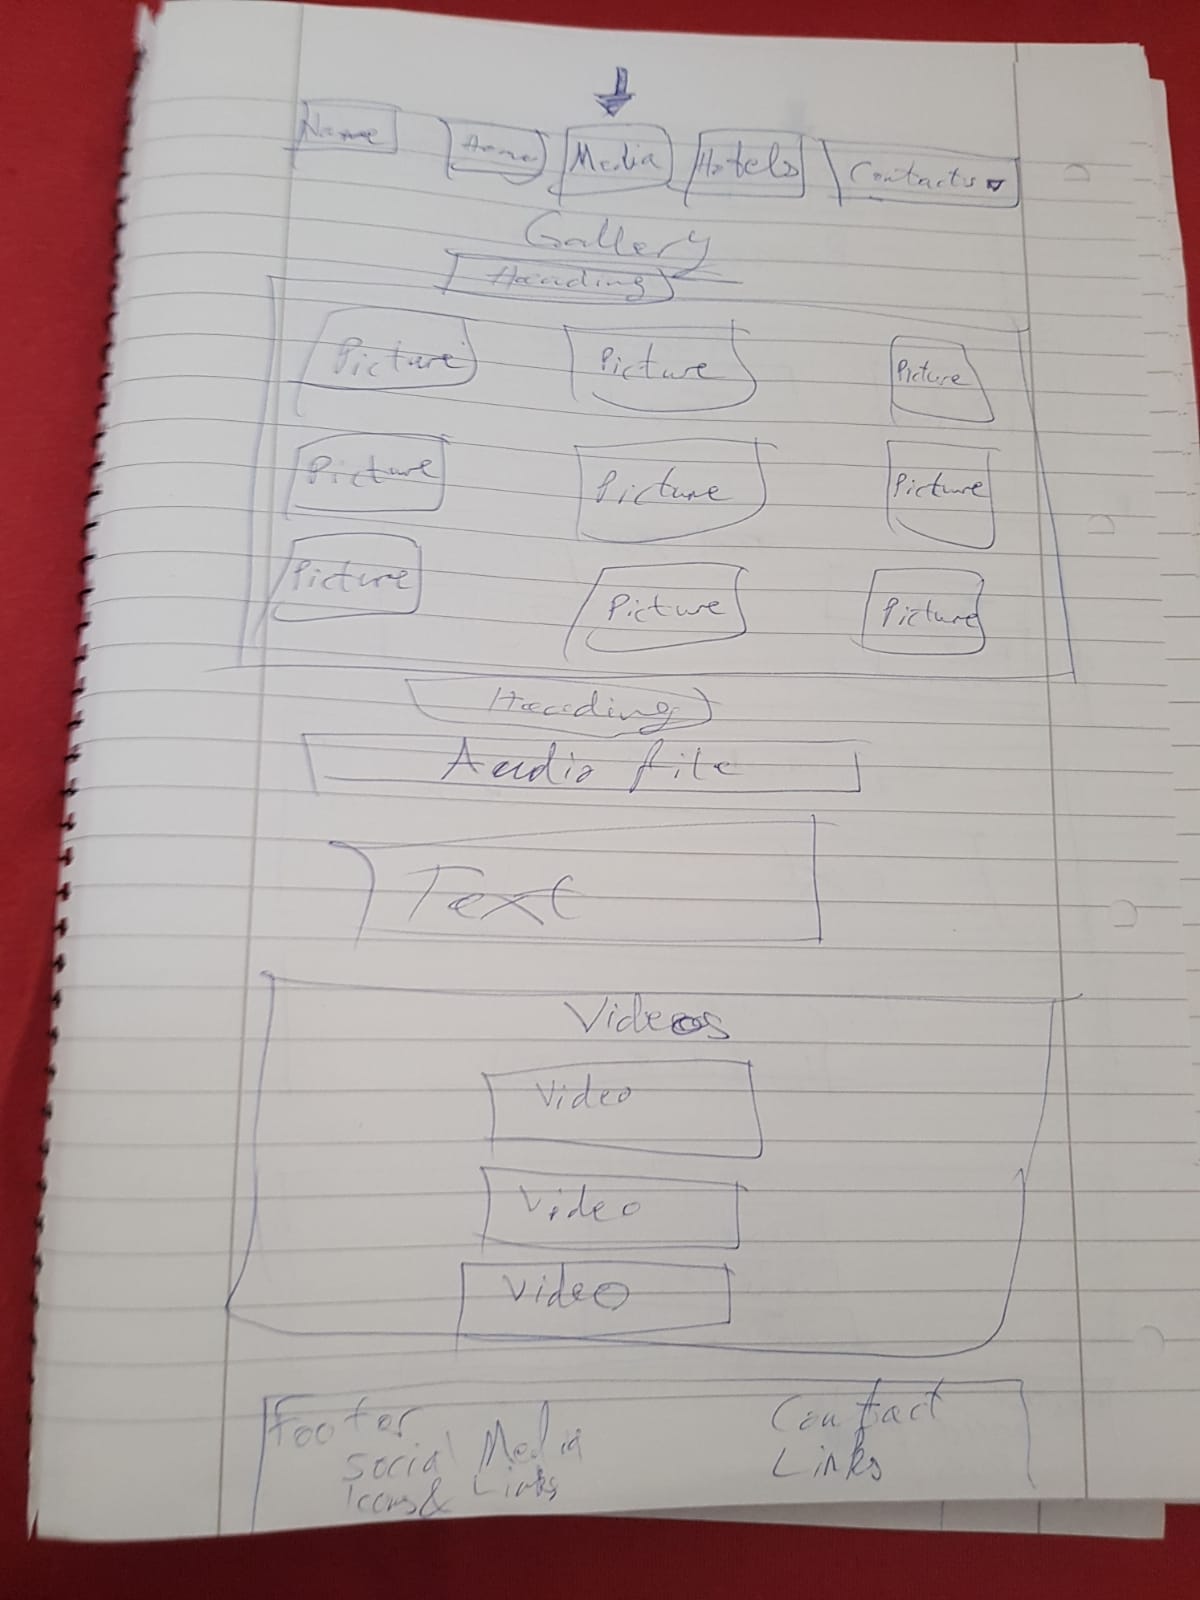 Name Home Media Hotels Contacts
Gallery
Heading
Picture Picture Picture
Picture Picture Picture
Picture Picture Picture
Heading
Audio file
Text
Videos
Video
Video
Video
Footer Contact
Social Media Links
Icons & Links